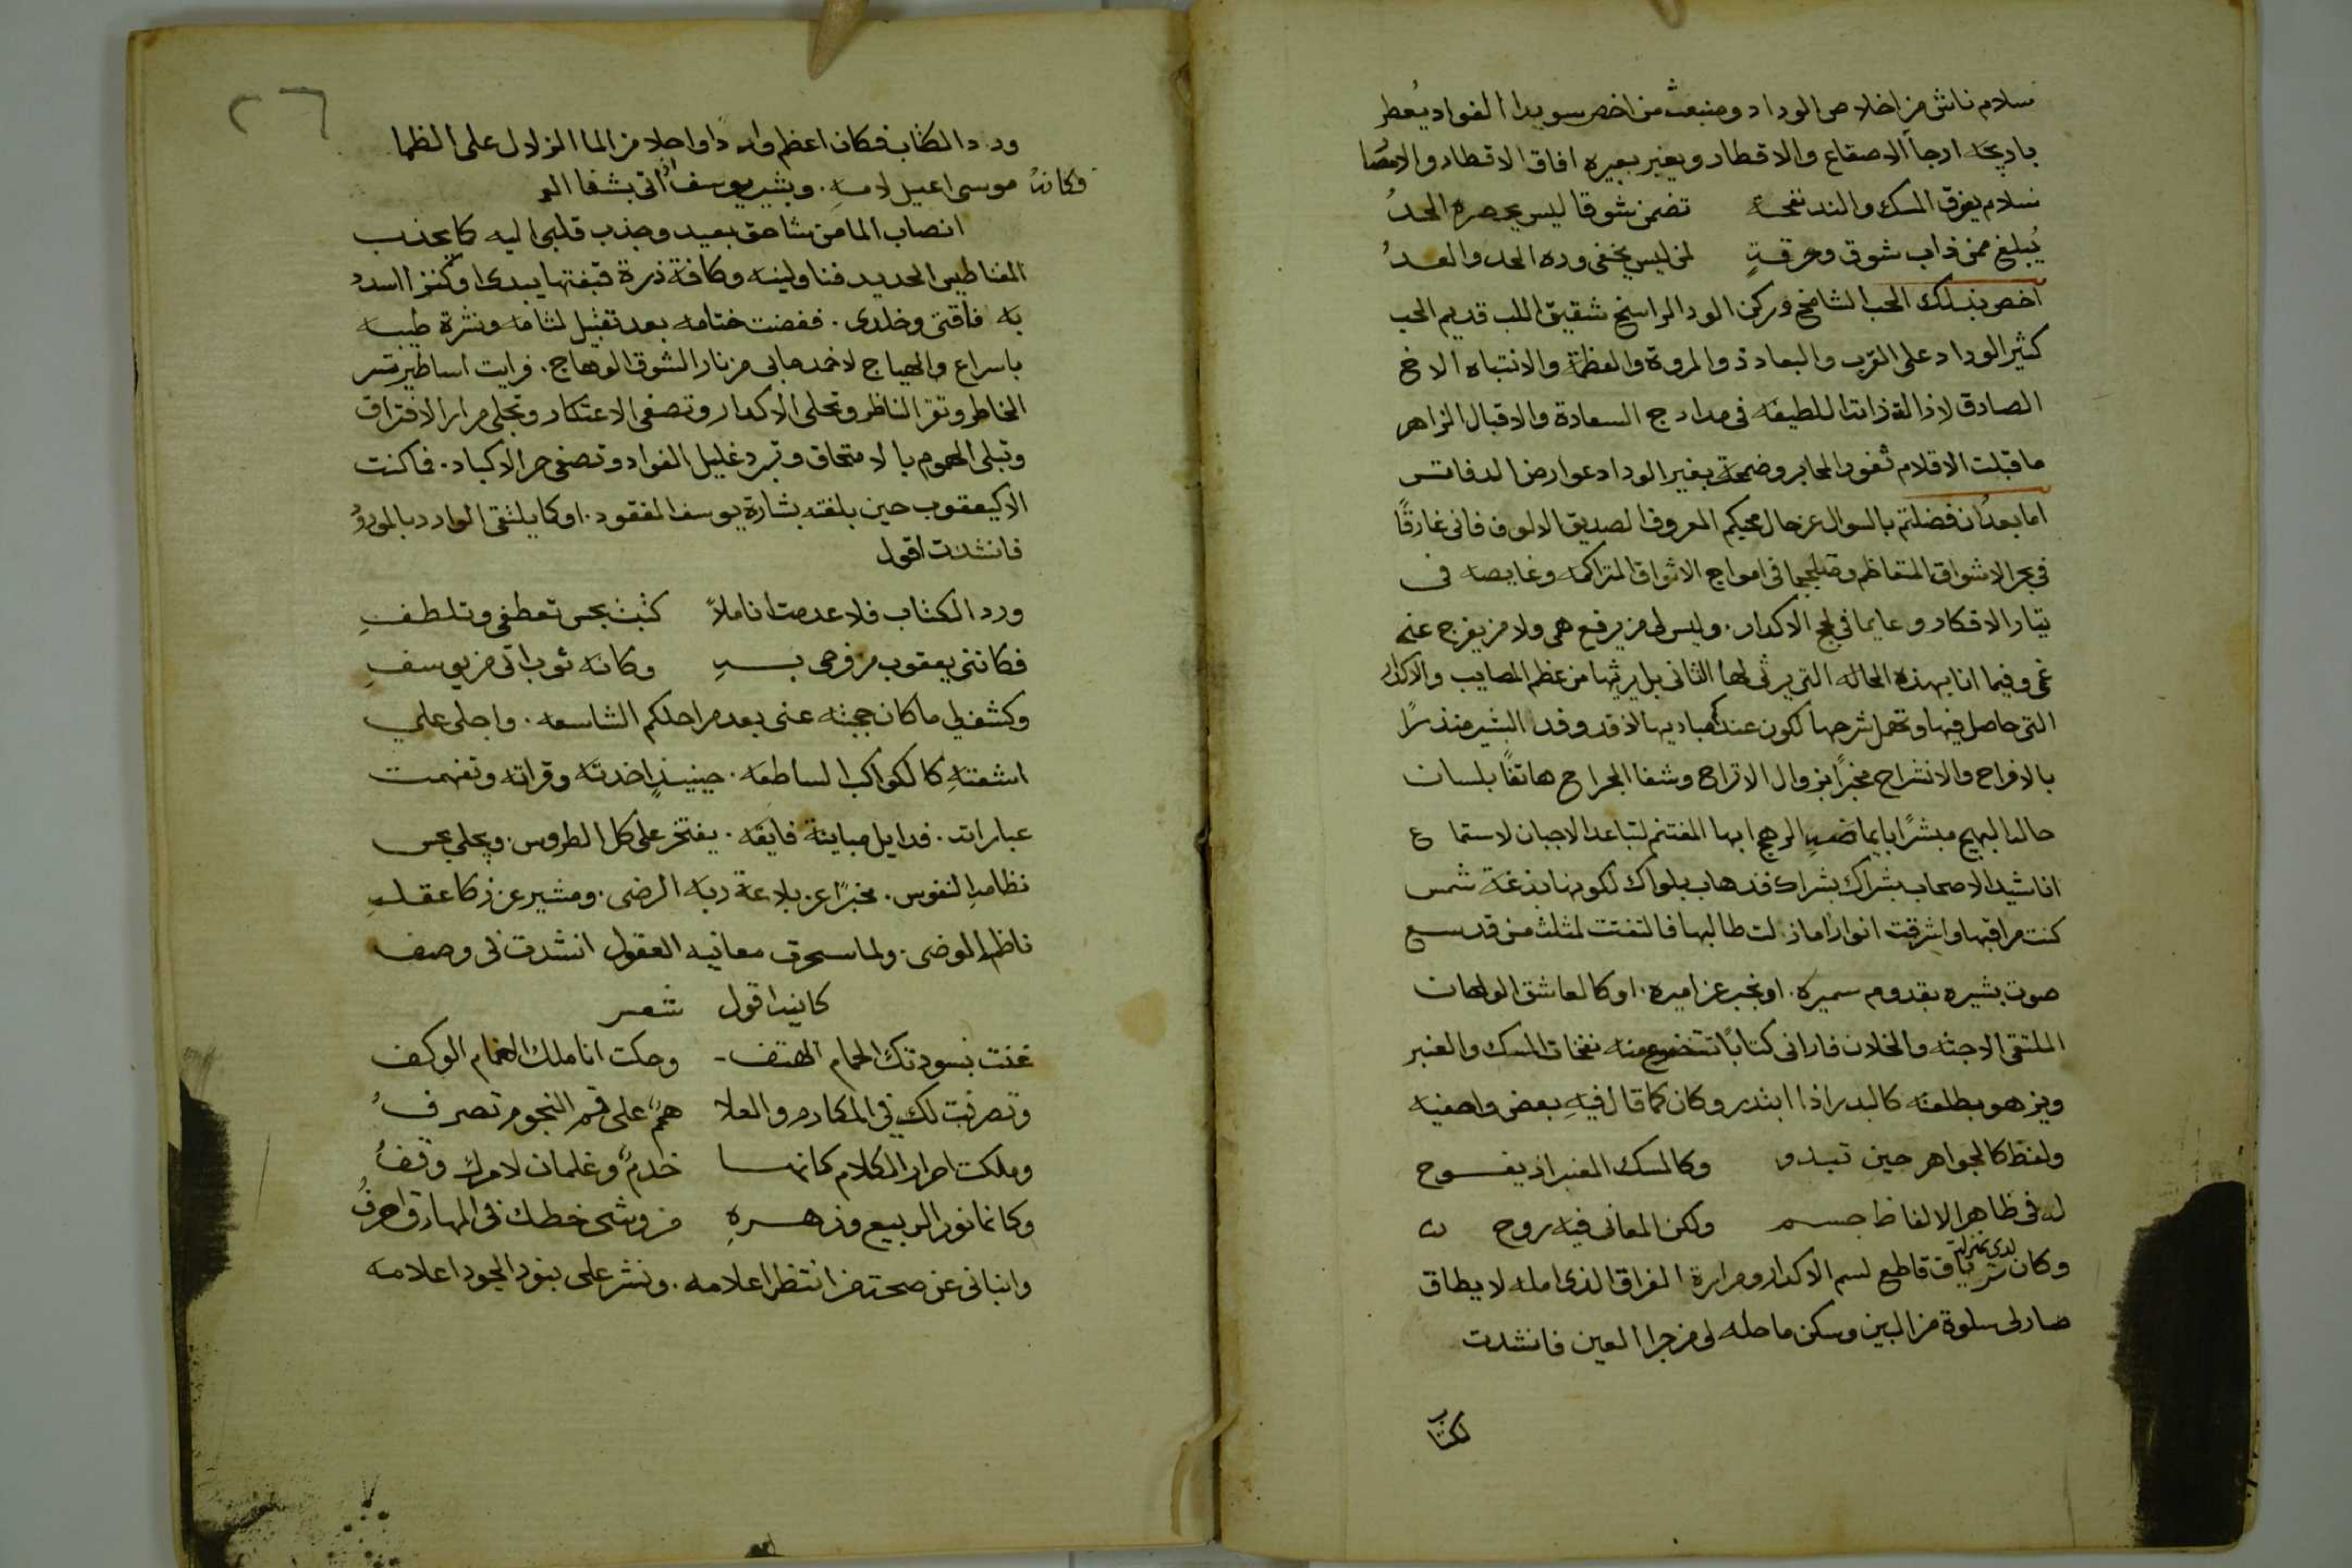 سلام ناش من اخلاص الوداد ومنبعث من اخص سويدا الفواد يُعطر
باريجه ارجآ الاصقاع والاقطار ويعنبر بعبيره افاق الاقطار والامصا
سلام يفوق المسك والند نفحة تضمن شوقا ليس يحصره الحدُ
يُبلغ ممن ذاب شوق وحرقةٍ لمن ليس يخفى وده الحد والعدُ
اخص بذلك الحب الشامخ وركن الود الراسخ شقيق اللب قديم الحب
كثير الوداد على القرب والبعاد ذو المروة والعظمة والانتباه الاخ
الصادق لاذالة ذاته اللطيفه في مدارج السعادة والاقبال الزاهر
ما قبلت الاقلام ثغور المحابر وضمخة بغير الوداد عوارض الدفاتر
اما بعد ان فضلتم بالسوال عن حال محبكم المعروف الصديق الالوف فاني غارقًا
في بحر الاشواق المتعاظم ومتلججا في امواج الاشواق المتراكمه وغايصه في
تيار الافكار وعايما في لجج الاكدار. وليس لي من يرفع همي ولا من يفرج عني
غمي وفيما انا بهذه الحاله التي يرثى لها الثاني بل يرثيها من عظم المصايب والاكدار
التي حاصل فيها وتحمل شرحها لكون عندكم مباديها لاذ قد وفد البشير منذرًا
بالافراح والانشراح مخبرًا بزوال الاتراح وشفا الجراح هاتفًا بلسان
حاله البهيج مبشرًا بايماضه الرهيج ايها المغتنم لتباعد الاحبان لاستماع
اناشيد الاصحاب بشراك بشراك قد هاب بلواك لكونها بذغة شمس
كنت مراقبها واشرقت انوارًا ما زلت طالبها فالتفتت لمثلث من قد سمع
صوت بشيره بقدوم سميره. او بخبر عن اميره. او كالعاشق الولهان
الملتقي الاحبه والخلان فاراني كتابًا تتضوع منه نفحات المسك والعنبر
ويزهو بطلعته كالبدر اذا ابتدر وكان كما قال فيهِ بعض واصفيه
ولفظ كالجواهر حين تبدو وكالمسك المعنبر اذ يفوح
له في ظاهر الالفاظ جسم ولكن المعاني فيه روح
وكان لدي بمنزلة ترياق قاطع لسم الاكدار ومرارة الفراق الذي امله لا يطاق
صار لي سلوة من البين وسكن ما حله لي من جرا العين فانشدت
لكتاب
٢٦
ورد الكتاب فكان اعظم واردًا واحلا من الما الزلال على الظما
وكانهُ موسى اعيد لامهِ. وبشير يوسف اذ اتى بشفا العمـ
انصاب الما من شاحق بعيد وجذب قلبي اليه كما يجذب
المغناطيس الحديد فناولينه وكافة ذرة قبضتها بيدي او كنز اسدد
به فاقتي وخلدي. ففضت ختامه بعد تقبيل لثامه ونشرة طيبه
باسراع والهياج لاخمد ما بي من نار الشوق الوهاج. فرايت اساطير تسر
الخاطر وتقر الناظر وتجلي الاكدار وتصفي الاعتكار وتجلي مرار الافتراق
وتبلي الهموم بالامتحاق وتبرد غليل الفواد وتصفي حر الاكباد. فما كنت
الا كيعقوب حين بلغته بشارة يوسف المفقود. او كما يلتقي الوارد بالمورودُ
فانشدت اقول
ورد الكتاب فلا عدمت اناملاً كتبت بحسن تعطفي وتلطفِ
فكانني يعقوب من فرحي بهِ وكانه ثوب اتى من يوسفِ
وكشف لي ما كان حجبته عني بعد مراحلكم الشاسعه. واجلى علي
اشعتهِ كالكواكب الساطعه. حينيذٍ اخدته وقراته وتفهمت
عباراته. فدايل مباينة فايقه. يفتخر على كل الطروس. ويجلي بحسن
نظامهِ النفوس. مخبرًا عن بلاغة ربه الرضى. ومشير عن زكا عقله
ناظم الموضي. ولما سحرت معانيه العقول انشدت في وصف
كاتبه اقول شعر
غنت بسوددك الحمام الهتف وحكت اناملك الغمام الوكف
وتصرفت لك في المكارم والعلا هممٌ على قمم النجوم تصرفُ
وملكت احرار الكلام كانها خدمٌ وغلمان لامرك وقفُ
وكانما نور الربيع وزهرهِ من وشي خطك في المهارق احرفُ
وانباني عن صحة من انتظر اعلامه. ونشر علي بنود الجود اعلامه